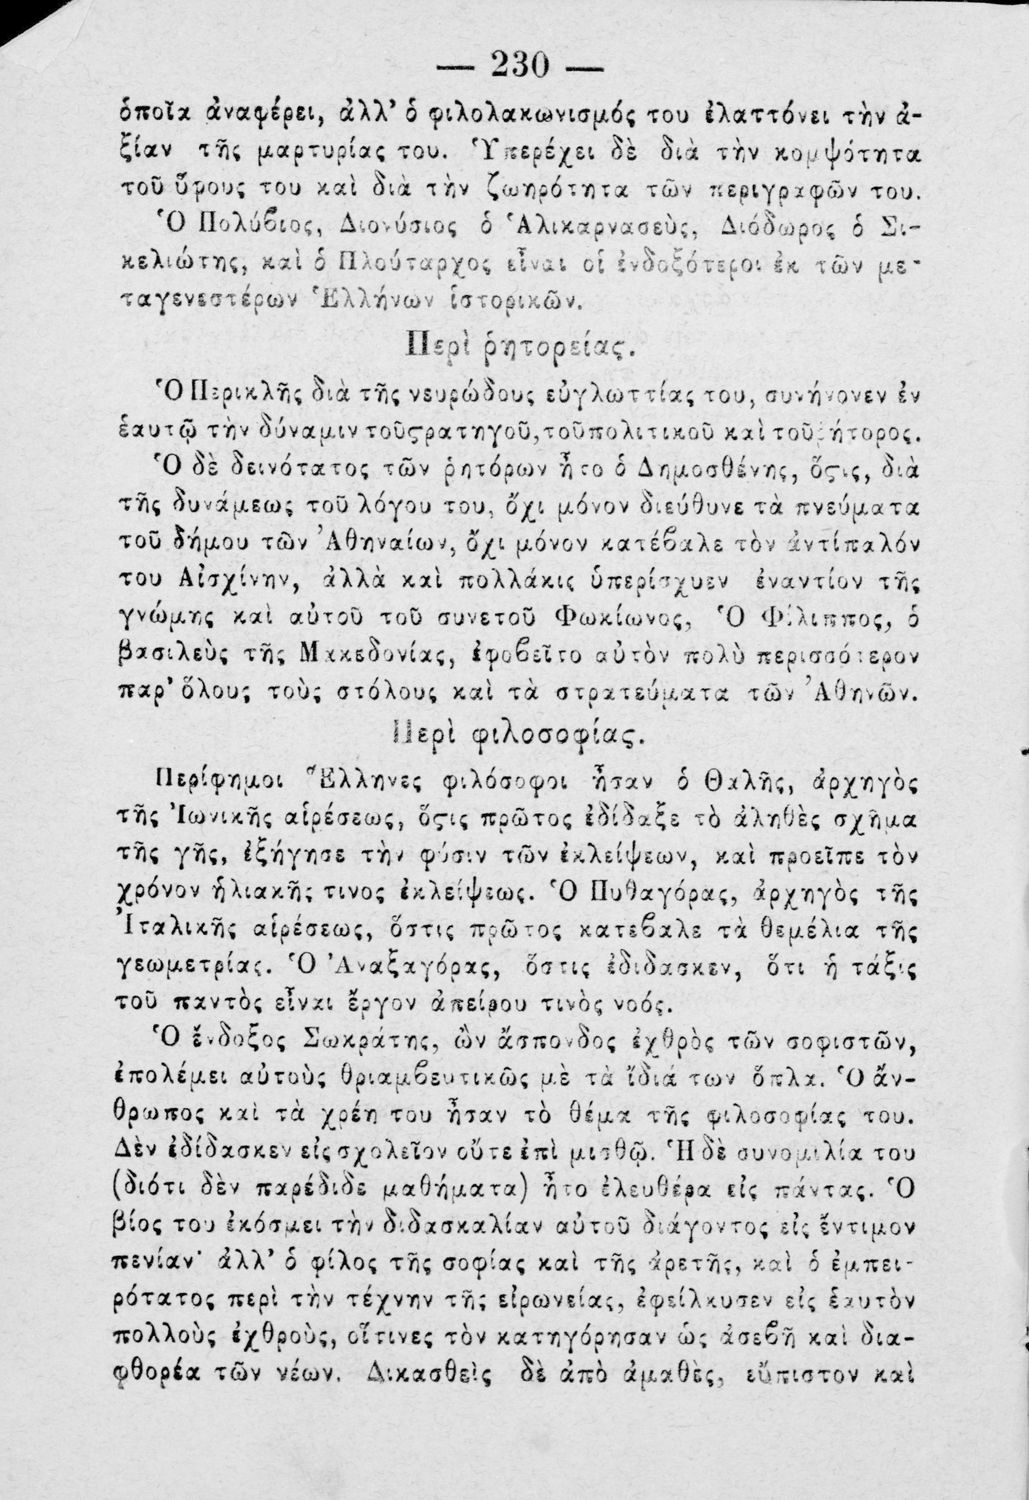 — 230 —
ὁποῖα ἀναφέρει, ἀλλ’ ὁ φιλολακωνισμός του ἐλαττόνει τὴν ἀ-
ξίαν τῆς μαρτυρίας του. Ὑπερέχει δὲ διὰ τὴν κομψότητα
τοῦ ὕφους του καὶ διὰ τὴν ζωηρότητα τῶν περιγραφῶν του.
Ὁ Πολύϐιος, Διονύσιος ὁ Ἁλικαρνασεὺς, Διόδωρος ὁ Σι-
κελιώτης, καὶ ὁ Πλούταρχος εἶναι οἱ ἐνδοξότεροι ἐκ τῶν με-
ταγενεστέρων Ἑλλήνων ἱστορικῶν.
Περὶ ῥητορείας.
Ὁ Περικλῆς διὰ τῆς νευρώδους εὐγλωττίας του, συνήνονεν ἐν
ἑαυτῷ τὴν δύναμιν τοῦ ϛρατηγοῦ, τοῦ πολιτικοῦ καὶ τοῦ ῥήτορος.
Ὁ δὲ δεινότατος τῶν ῥητόρων ἦτο ὁ Δημοσθένης, ὅϛις, διὰ
τῆς δυνάμεως τοῦ λόγου του, ὄχι μόνον διεύθυνε τὰ πνεύματα
τοῦ δήμου τῶν Ἀθηναίων, ὄχι μόνον κατέϐαλε τὸν ἀντίπαλόν
του Αἰσχίνην, ἀλλὰ καὶ πολλάκις ὑπερίσχυεν ἐναντίον τῆς
γνώμης καὶ αὐτοῦ τοῦ συνετοῦ Φωκίωνος, Ὁ Φίλιππος, ὁ
βασιλεὺς τῆς Μακεδονίας, ἐφοϐεῖτο αὐτὸν πολὺ περισσότερον
παρ’ ὅλους τοὺς στόλους καὶ τὰ στρατεύματα τῶν Ἀθηνῶν.
Περὶ φιλοσοφίας.
Περίφημοι Ἕλληνες φιλόσοφοι ἦσαν ὁ Θαλῆς, ἀρχηγὸς
τῆς Ἰωνικῆς αἱρέσεως, ὅϛις πρῶτος ἐδίδαξε τὸ ἀληθὲς σχῆμα
τῆς γῆς, ἐξήγησε τὴν φύσιν τῶν ἐκλείψεων, καὶ προεῖπε τὸν
χρόνον ἡλιακῆς τινος ἐκλείψεως. Ὁ Πυθαγόρας, ἀρχηγὸς τῆς
Ἰταλικῆς αἱρέσεως, ὅστις πρῶτος κατεϐαλε τὰ θεμέλια τῆς
γεωμετρίας. Ὁ Ἀναξαγόρας, ὅστις ἐδιδασκεν, ὅτι ἡ τάξις
τοῦ παντὸς εἶναι ἔργον ἀπείρου τινὸς νοός.
Ὁ ἔνδοξος Σωκράτης, ὢν ἄσπονδος ἐχθρὸς τῶν σοφιστῶν,
ἐπολέμει αὐτοὺς θριαμϐευτικῶς μὲ τὰ ἴδιά των ὅπλα. Ὁ ἄν-
θρωπος καὶ τὰ χρέη του ἦσαν τὸ θέμα τῆς φιλοσοφίας του.
Δὲν ἐδίδασκεν εἰς σχολεῖον οὔτε ἐπὶ μισθῷ. Ἡ δὲ συνομιλία του
(διότι δὲν παρέδιδε μαθήματα) ἦτο ἐλευθέρα εἰς πάντας. Ὁ
βίος του ἐκόσμει τὴν διδασκαλίαν αὐτοῦ διάγοντος εἰς ἔντιμον
πενίαν· ἀλλ’ ὁ φίλος τῆς σοφίας καὶ τῆς ἀρετῆς, καὶ ὁ ἐμπει-
ρότατος περὶ τὴν τέχνην τῆς εἰρωνείας, ἐφείλκυσεν εἰς ἑαυτὸν
πολλοὺς ἐχθροὺς, οἵτινες τὸν κατηγόρησαν ὡς ἀσεϐῆ καὶ δια-
φθορέα τῶν νέων. Δικασθεὶς δὲ ἀπὸ ἀμαθὲς, εὔπιστον καὶ